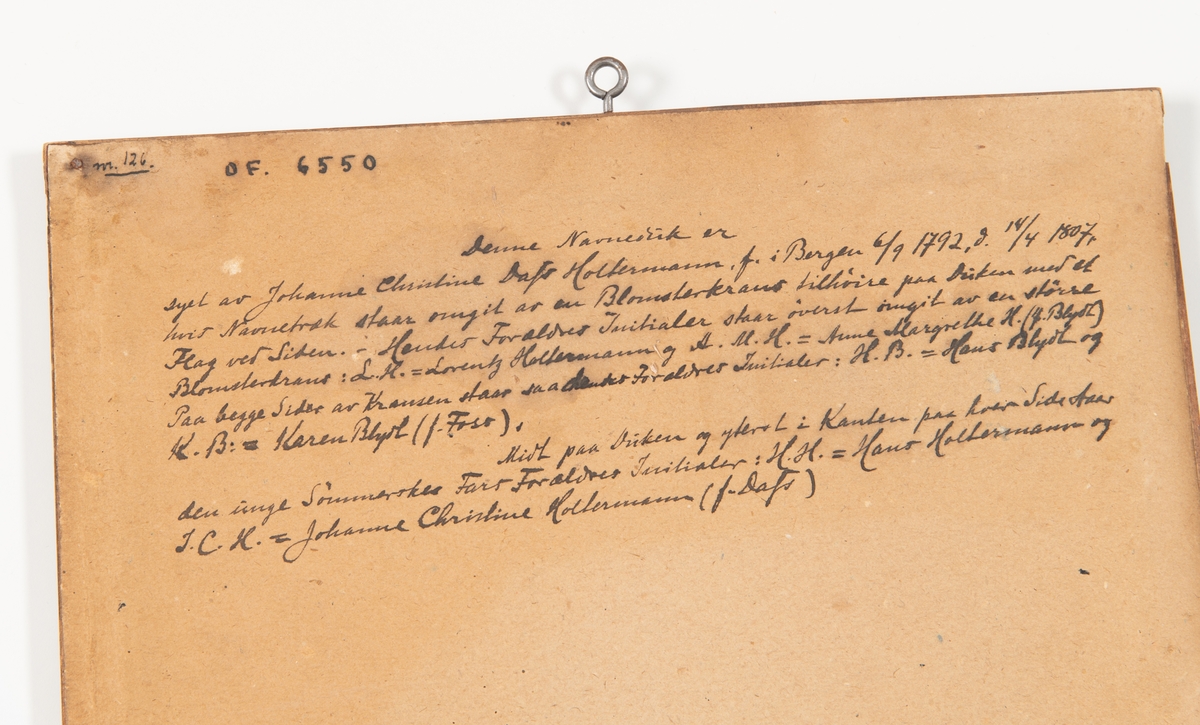 nr. 126.
OF. 6550
Denne Navneduk er
syet av Johanne Christine Dass Holtermann, f. i Bergen 6/9 1792, d. 14/4 1807,
hvis Navnetræk staar omgit av en Blomsterkrans tilhöire paa Duken med et
Flag ved Siden. Hendes Forældres Initialer staar överst omgit av en större
Blomsterkrans: L. H. = Lorentz Holtermann og A. M. H. = Anne Margrethe H. (f. Blydt)
Paa begge Sider av Kransen staar saa hendes Forældres Initialer: H. B. = Hans Blydt og
K. B: = Karen Blydt (f. Foss).
Midt paa Duken og yterst i Kanten paa hver Side staar
den unge Sömmerskes Fars Forældres Initialer: H. H. = Hans Holtermann og
J. C. H. = Johanne Christine Holtermann (f. Dass)